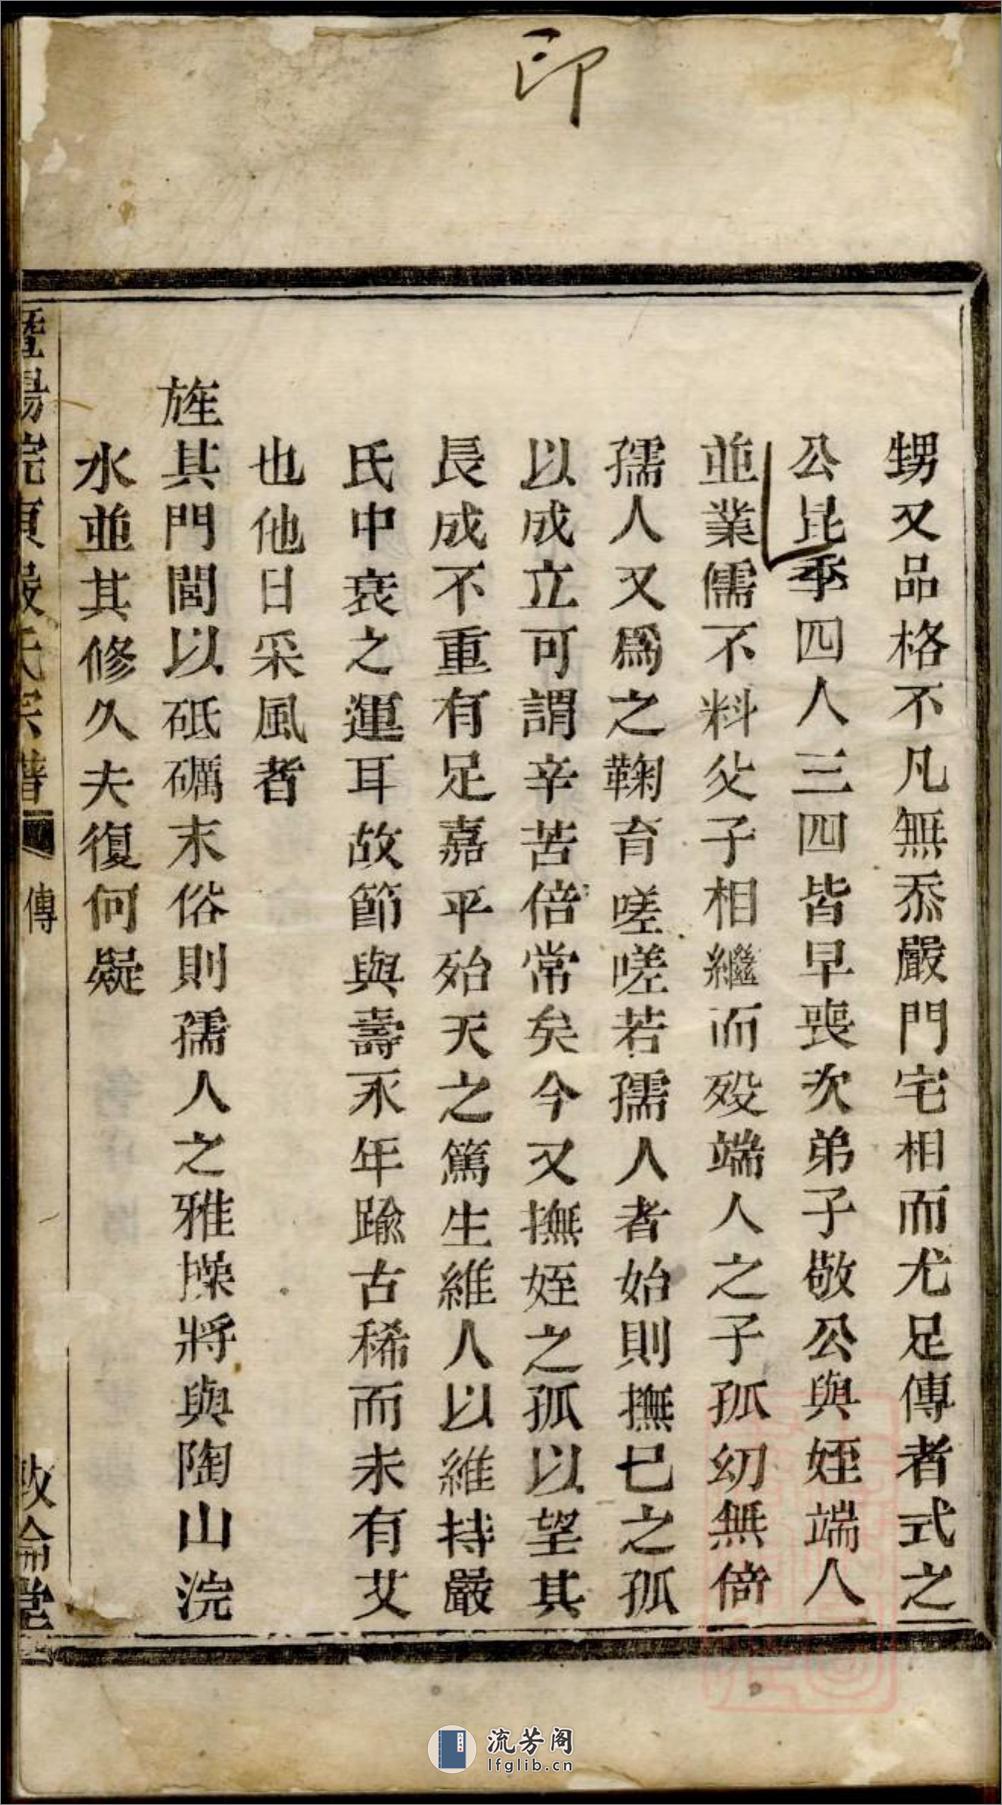 印
甥又品格不凡無忝嚴門宅相而尤足傳者式之
公昆季四人三四皆早喪次弟子敬公與姪端人
並業儒不料父子相繼而歿端人之子孤幼無倚
孺人又爲之鞠育嗟嗟若孺人者始則撫已之孤
以成立可謂辛苦倍常矣今又撫姪之孤以望其
長成不重有足嘉乎殆天之篤生維人以維持嚴
氏中衰之運耳故節與壽永年踰古稀而未有艾
也他日采風者
旌其門閭以砥礪末俗則孺人之雅操將與陶山浣
水並其修久夫復何疑
暨陽浣東嚴氏宗譜 傳 敦倫堂
流芳阁
lfglib.cn